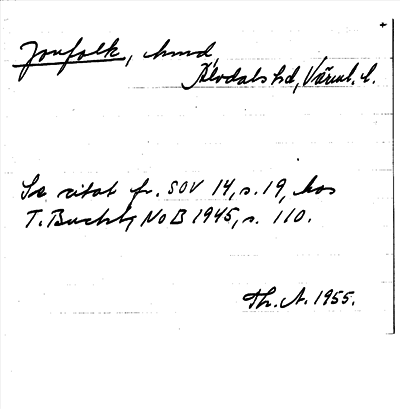 Jonfolk, hmd,
Älvdals hd, Värml. l.
Se citat fr. SOV 14, s. 19, hos
T. Bucht, NoB 1945, s. 110.
Th. A. 1955.